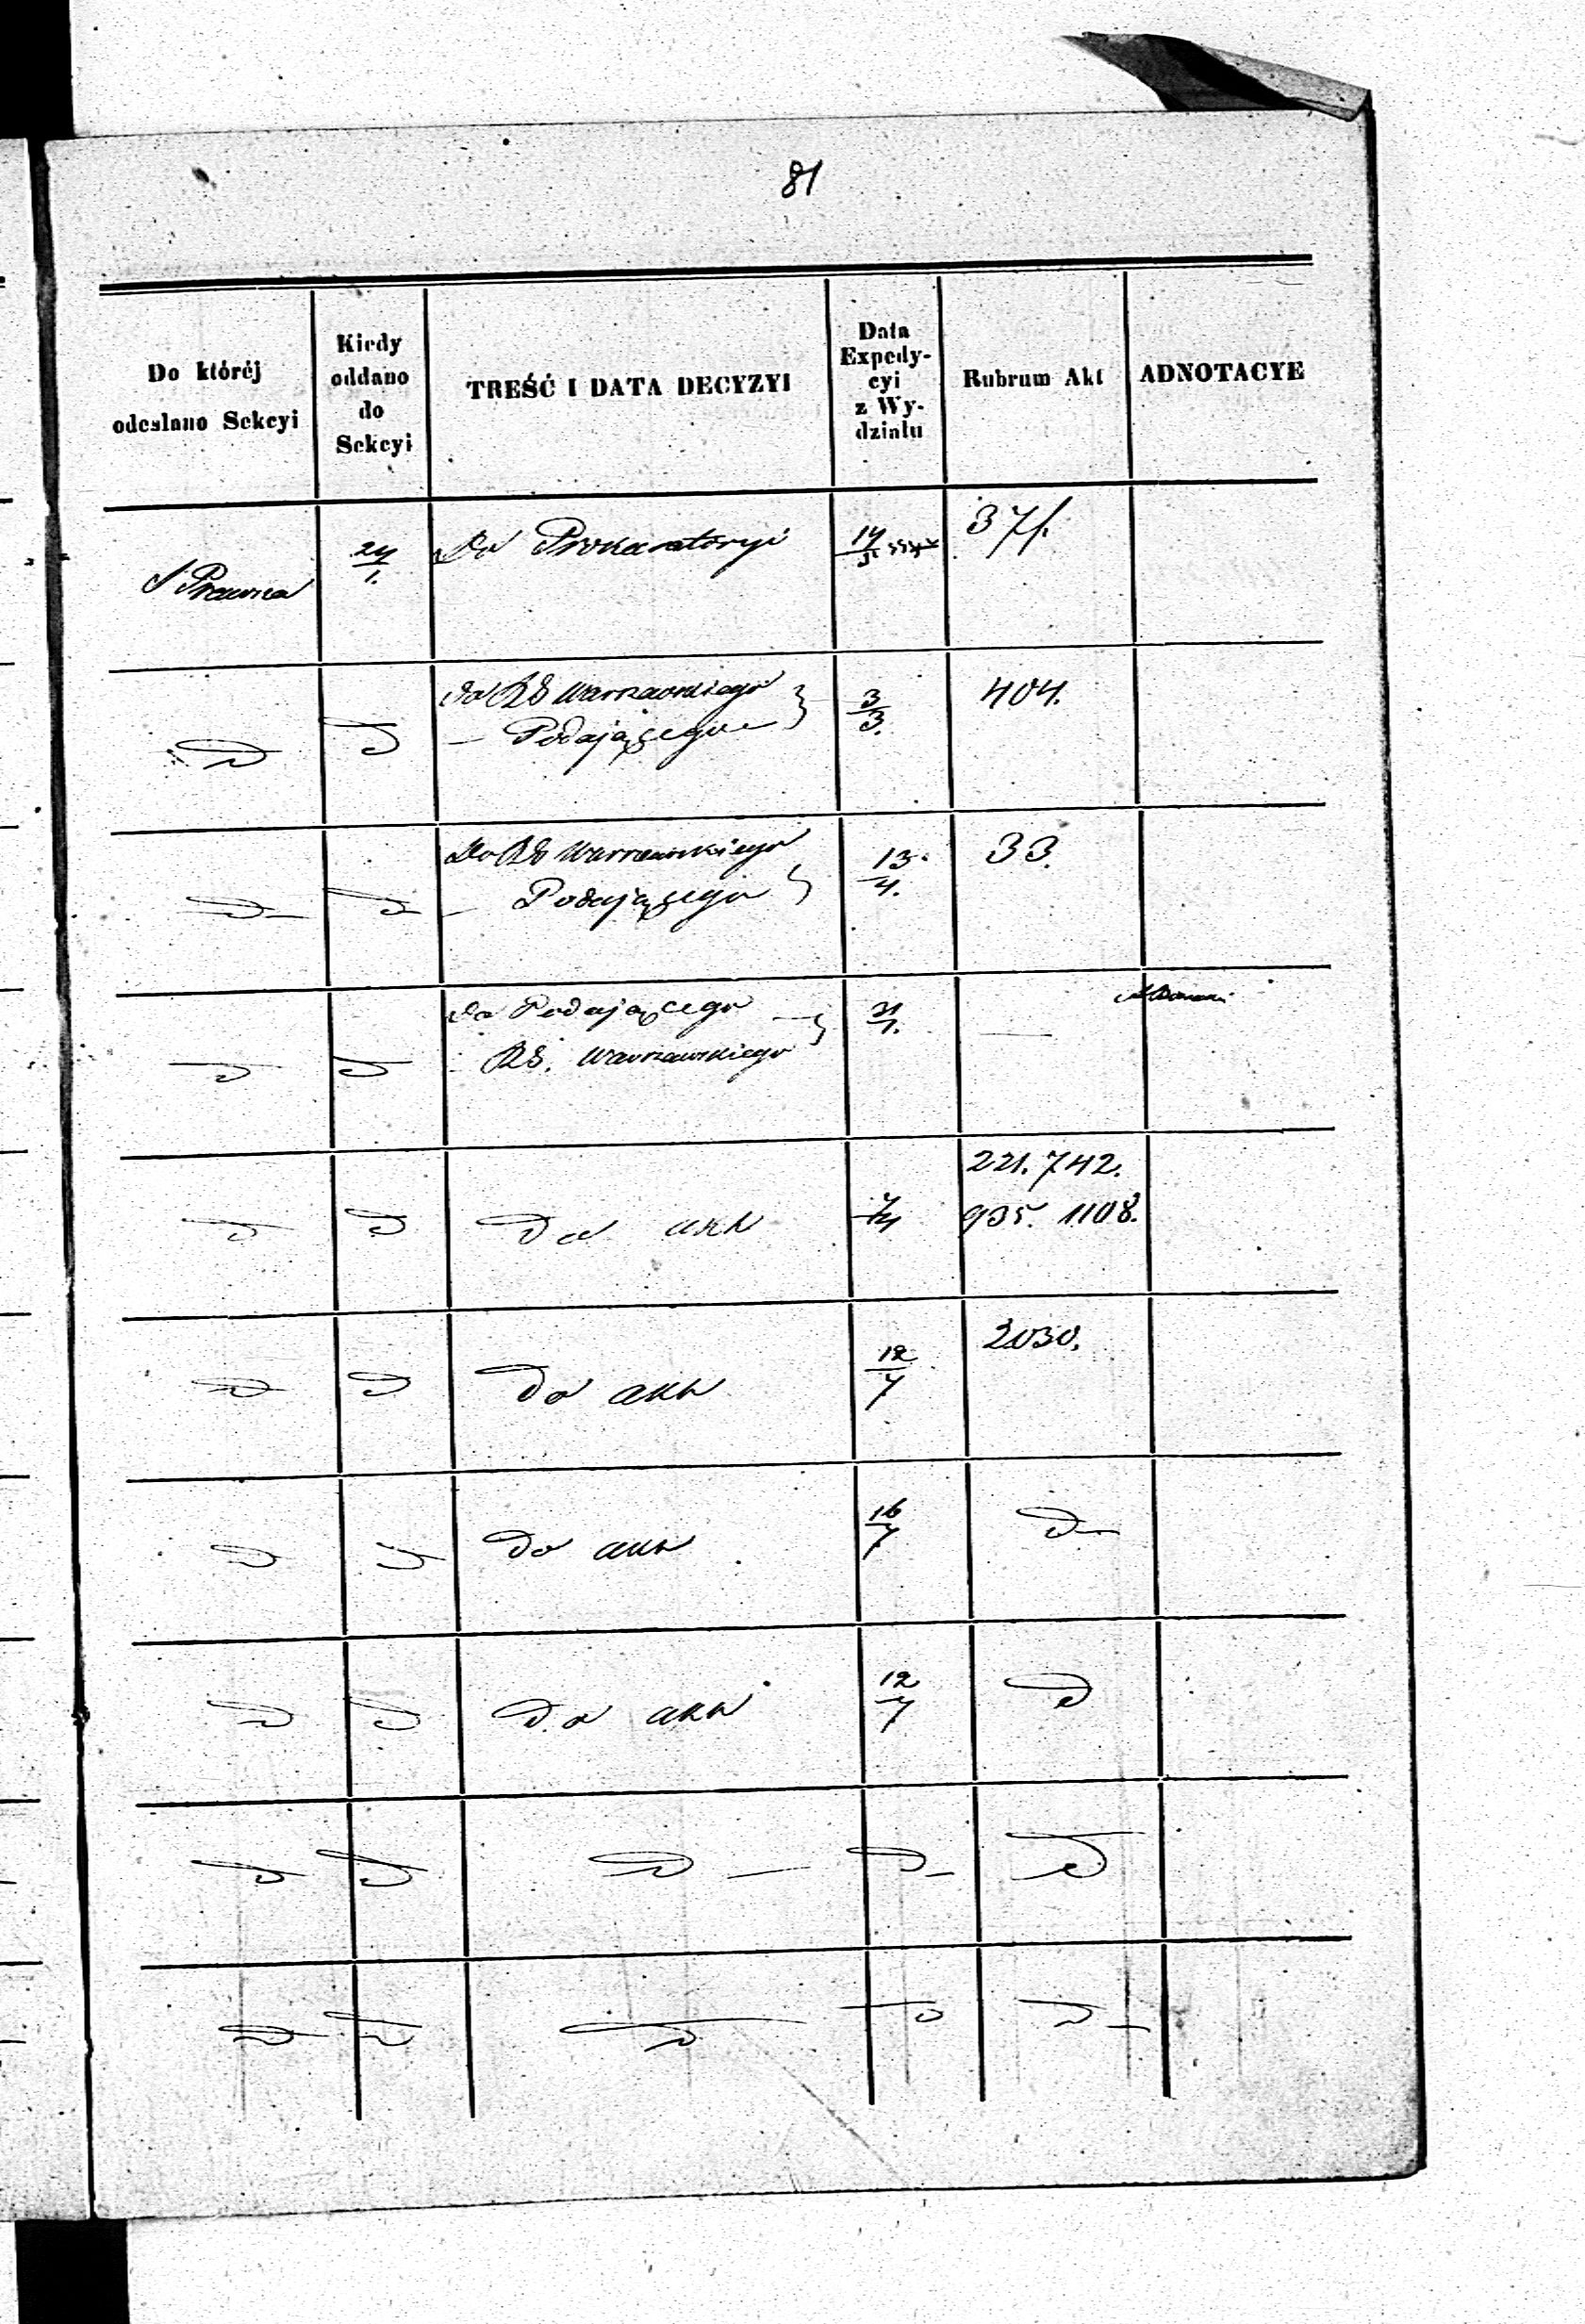 81
Do któréj
odesłano Sekcyi
Kiedy
oddano
do
Sekcyi
TREŚĆ I DATA DECYZYI
Data
Expedy-
cyi
z Wy-
działu
Rubrum Akt
ADNOTACYE
S Prawna
24/1.
Do Prokuratoryi
14
37/.
D
D
do RG Warszawskiego
— Podającego
3/3.
404.
D
D
Do RG Warszawskiego
— Podającego
13/4.
33.
D
D
Do Podającego —
RG. Warszawskiego
—
D
D
Do akt
221. 742.
935. 1108.
D
D
Do akt
12/4
2030.
D
D
Do akt
16/4
D
D
D
Do akt
12/4
D
D
D
D —
D
D
D
D
D
D
D